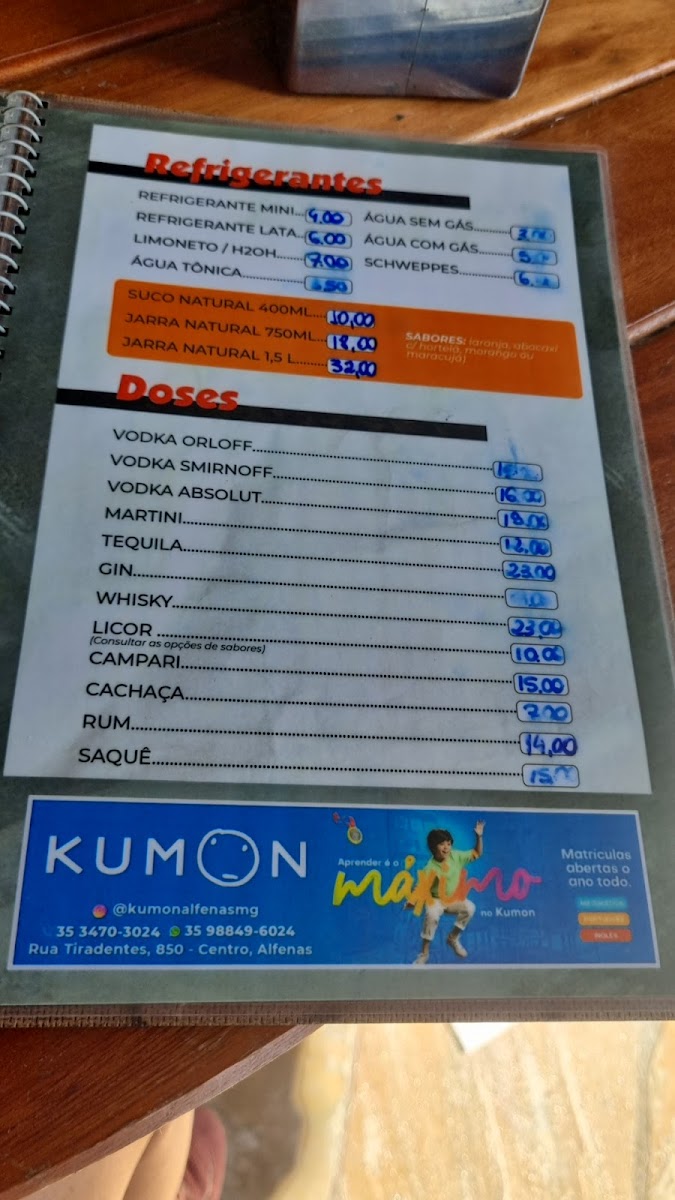 Refrigerantes
REFRIGERANTE MINI...4,00
REFRIGERANTE LATA...6,00
LIMONETO / H2OH...........7,00
ÁGUA TÔNICA.................
ÁGUA SEM GÁS.........
ÁGUA COM GÁS.........
SCHWEPPES...............6,
SUCO NATURAL 400ML...10,00
JARRA NATURAL 750ML...18,00
JARRA NATURAL 1,5 L.........32,00
SABORES: laranja, abacaxi
c/ hortelã, morango ou
maracujá)
Doses
VODKA ORLOFF
VODKA SMIRNOFF 16,00
VODKA ABSOLUT 18,00
MARTINI 12,00
TEQUILA 23,00
GIN
WHISKY 23,00
LICOR 10,00
(Consultar as opções de sabores)
CAMPARI 15,00
CACHAÇA 7,00
RUM 14,00
SAQUÊ 15,00
KUMON
@kumonalfenasmg
35 3470-3024 35 98849-6024
Rua Tiradentes, 850 - Centro, Alfenas
Aprender é o
máximo
no Kumon
Matrículas
abertas o
ano todo.
MATEMÁTICA
PORTUGUÊS
INGLÊS